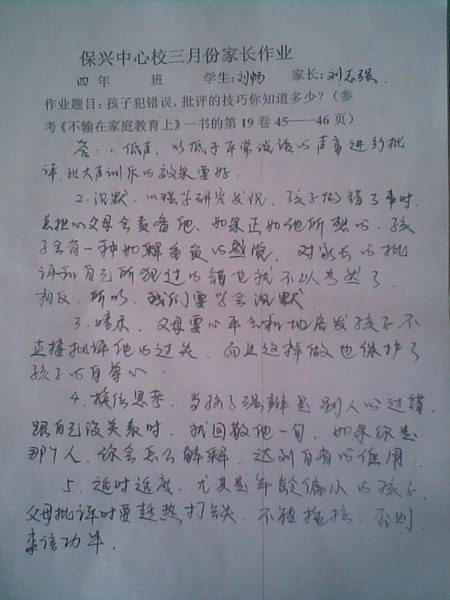 保兴中心校三月份家长作业
四年 班 学生:刘畅 家长:刘志强
作业题目:孩子犯错误,批评的技巧你知道多少?(参
考《不输在家庭教育上》一书的第19卷45——46页)
答:1、低声,以低于平常说话的声音进行批
评,比大声训斥的效果要好.
2、沉默,心理学研究发现,孩子做错了事时,
总担心父母会责备他,如果正如他所想的,孩
子会有一种如释重负的感觉,对家长的批
评和自己所犯过的错也就不以为然了,
相反,所以,我们要学会沉默.
3、暗示,父母要心平气和地启发孩子不
直接批评他的过失,而且这样做也保护了
孩子的自尊心.
4、换位思考,当孩子强辩是别人的过错,
跟自己没关系时,就回敬他一句,如果你是
那个人,你会怎么解释,达到自省的作用.
5、适时适度,尤其是年龄偏小的孩子,
父母批评时要趁热打铁,不能拖拉,否则,
事倍功半.